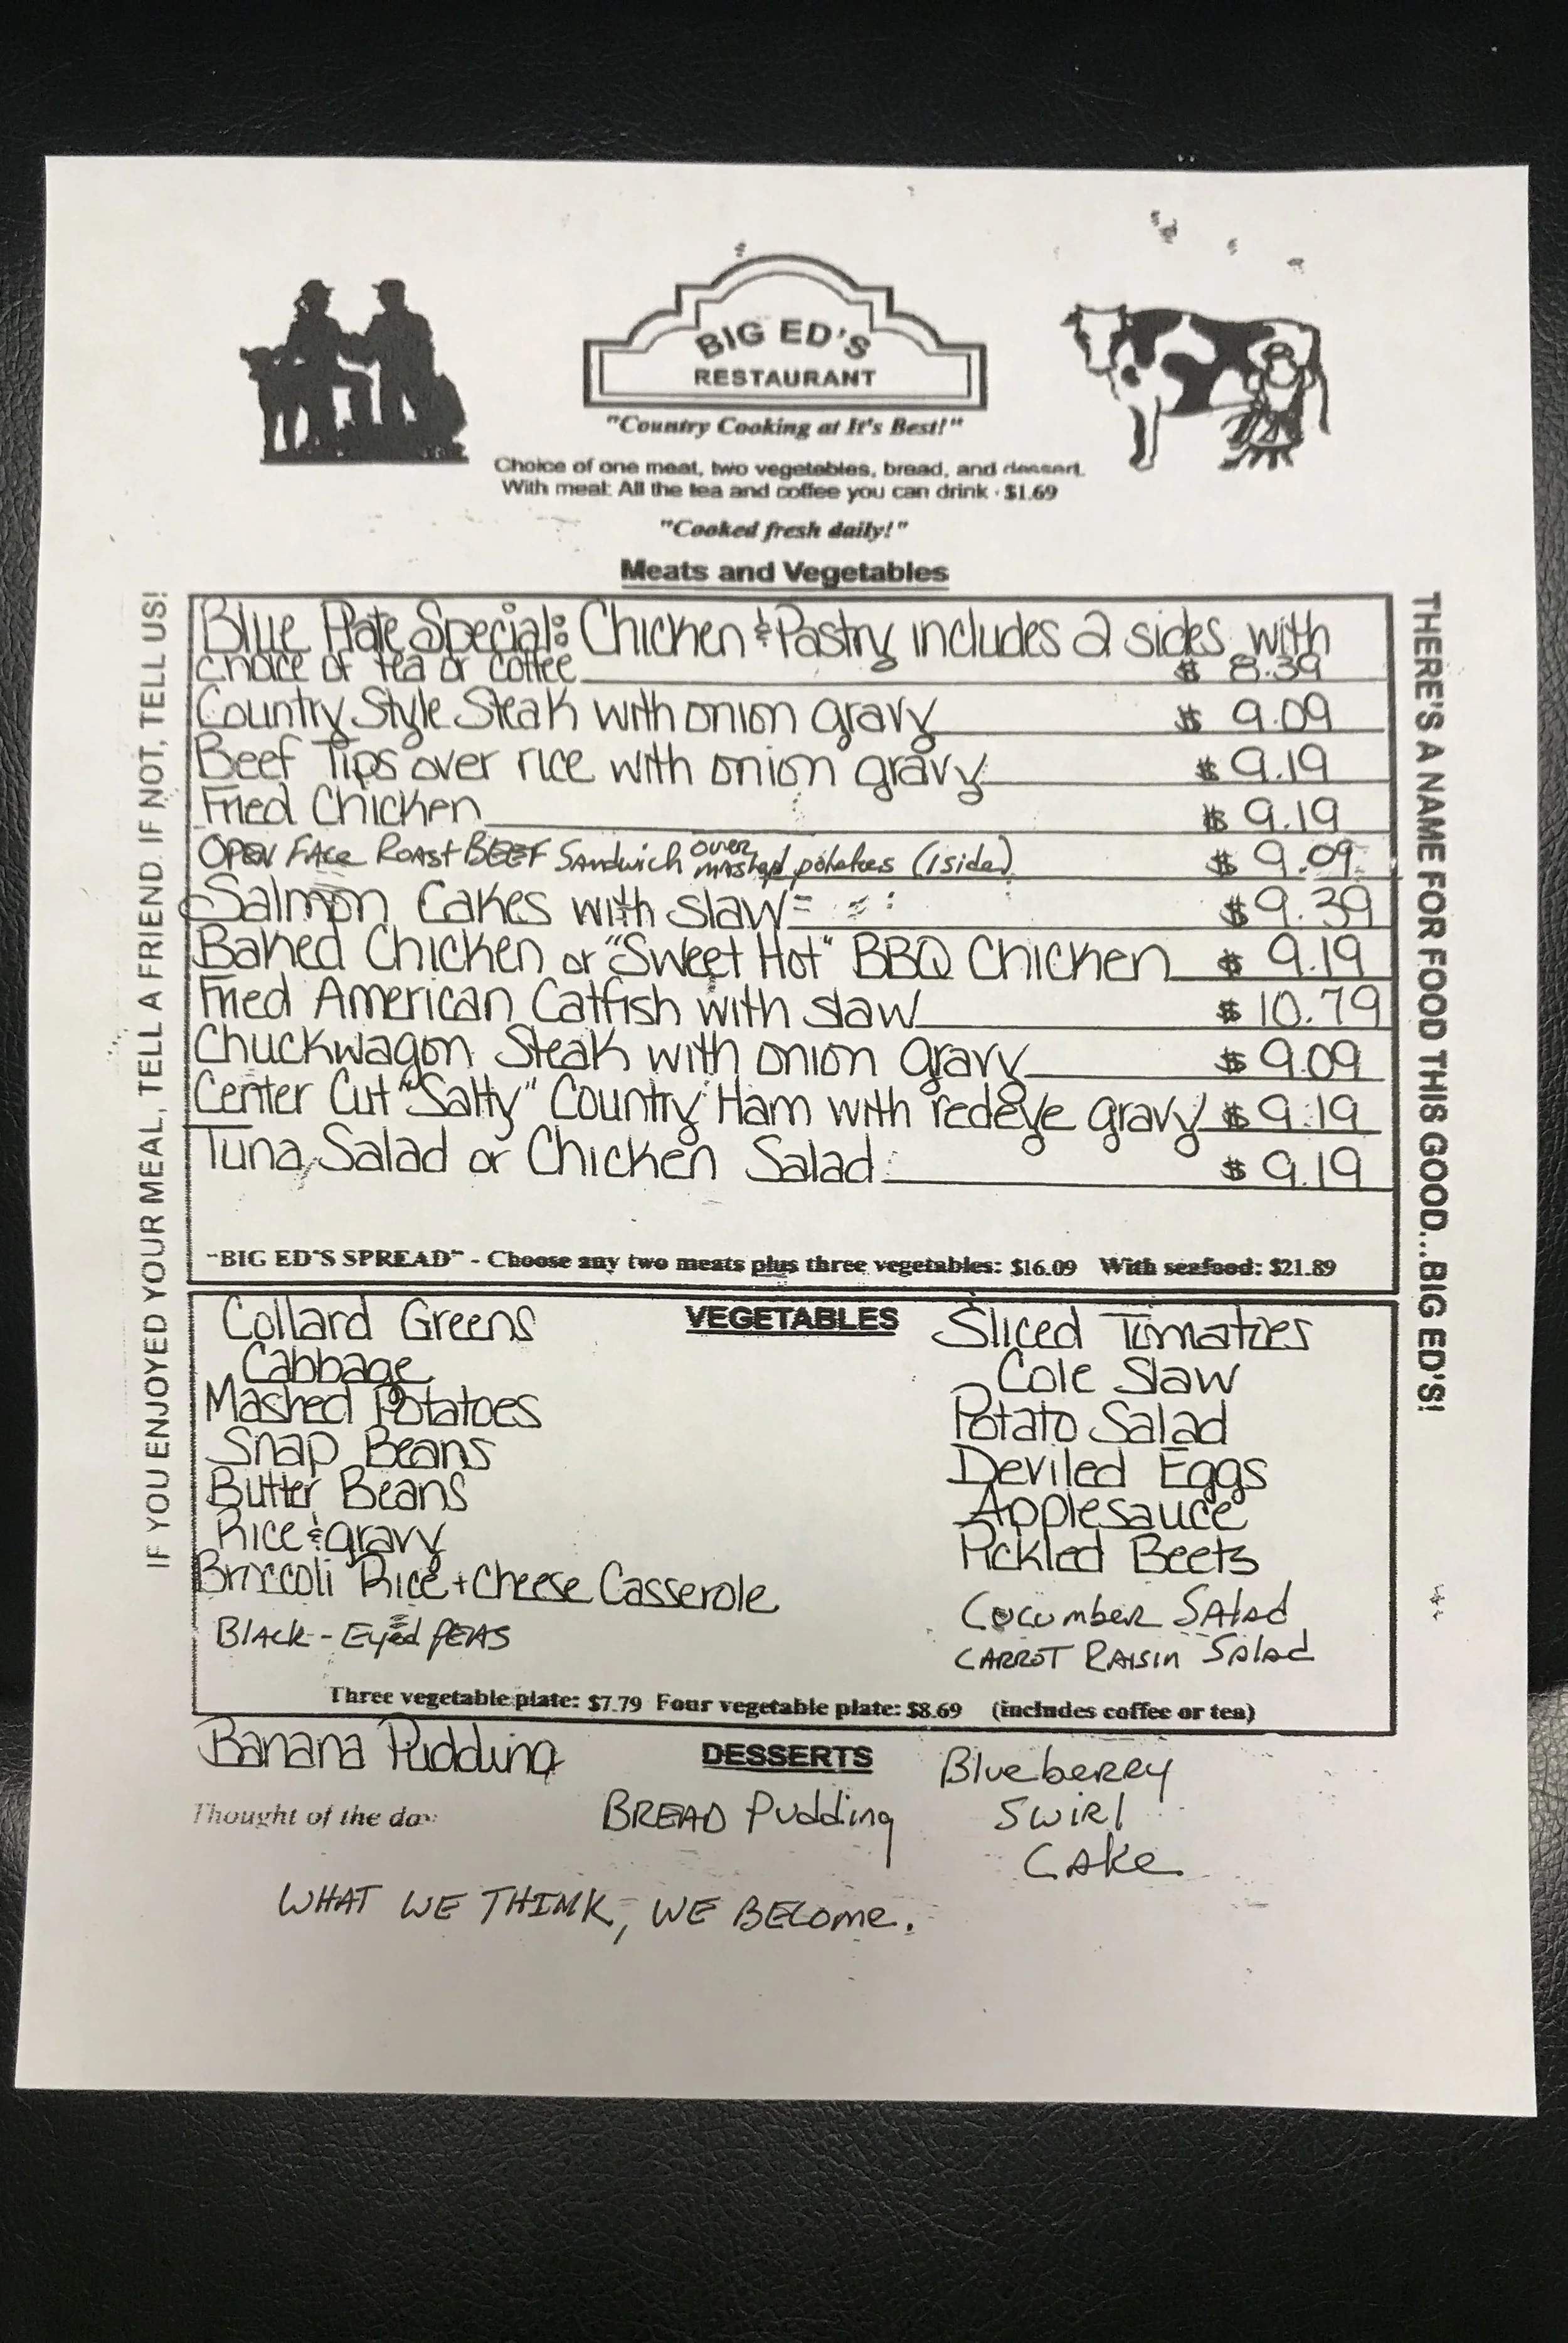 BIG ED'S
RESTAURANT
"Country Cooking at It's Best!"
Choice of one meat, two vegetables, bread, and dessert.
With meal: All the tea and coffee you can drink · $1.69
"Cooked fresh daily!"
Meats and Vegetables
Blue Plate Special: Chicken & Pastry includes 2 sides with
choice of tea or coffee $ 8.39
Country Style Steak with onion gravy $ 9.09
Beef Tips over rice with onion gravy $ 9.19
Fried Chicken $ 9.19
OPEN FACE ROAST BEEF Sandwich over mashed potatoes (1 side) $ 9.09
Salmon Cakes with slaw $ 9.39
Baked Chicken or "Sweet Hot" BBQ Chicken $ 9.19
Fried American Catfish with slaw $ 10.79
Chuckwagon Steak with onion gravy $ 9.09
Center Cut "Salty" Country Ham with redeye gravy $ 9.19
Tuna Salad or Chicken Salad $ 9.19
"BIG ED'S SPREAD" - Choose any two meats plus three vegetables: $16.09 With seafood: $21.89
IF YOU ENJOYED YOUR MEAL, TELL A FRIEND. IF NOT, TELL US!
THERE'S A NAME FOR FOOD THIS GOOD...BIG ED'S!
VEGETABLES
Collard Greens
Cabbage
Mashed Potatoes
Snap Beans
Butter Beans
Rice & gravy
Broccoli Rice + Cheese Casserole
BLACK-EYED PEAS
Sliced Tomatoes
Cole Slaw
Potato Salad
Deviled Eggs
Applesauce
Pickled Beets
Cucumber Salad
CARROT RAISIN Salad
Three vegetable plate: $7.79 Four vegetable plate: $8.69 (includes coffee or tea)
DESSERTS
Banana Pudding
BREAD Pudding
Blueberry
SWIRL
CAKE
Thought of the day:
WHAT WE THINK, WE BECOME.